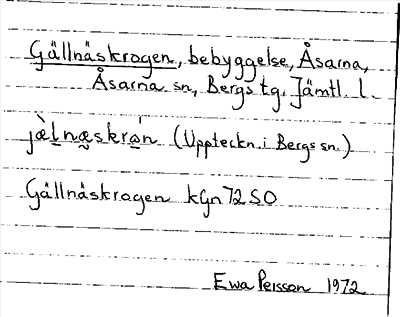 Gällnäskrogen, bebyggelse, Åsarna,
Åsarna sn, Bergs tg. Jämtl. l.
jæ̀l̲næ̰skrə̲́n (Uppteckn. i Bergs sn.)
Gällnäskrogen kGn 72 SO
Ewa Persson 1972